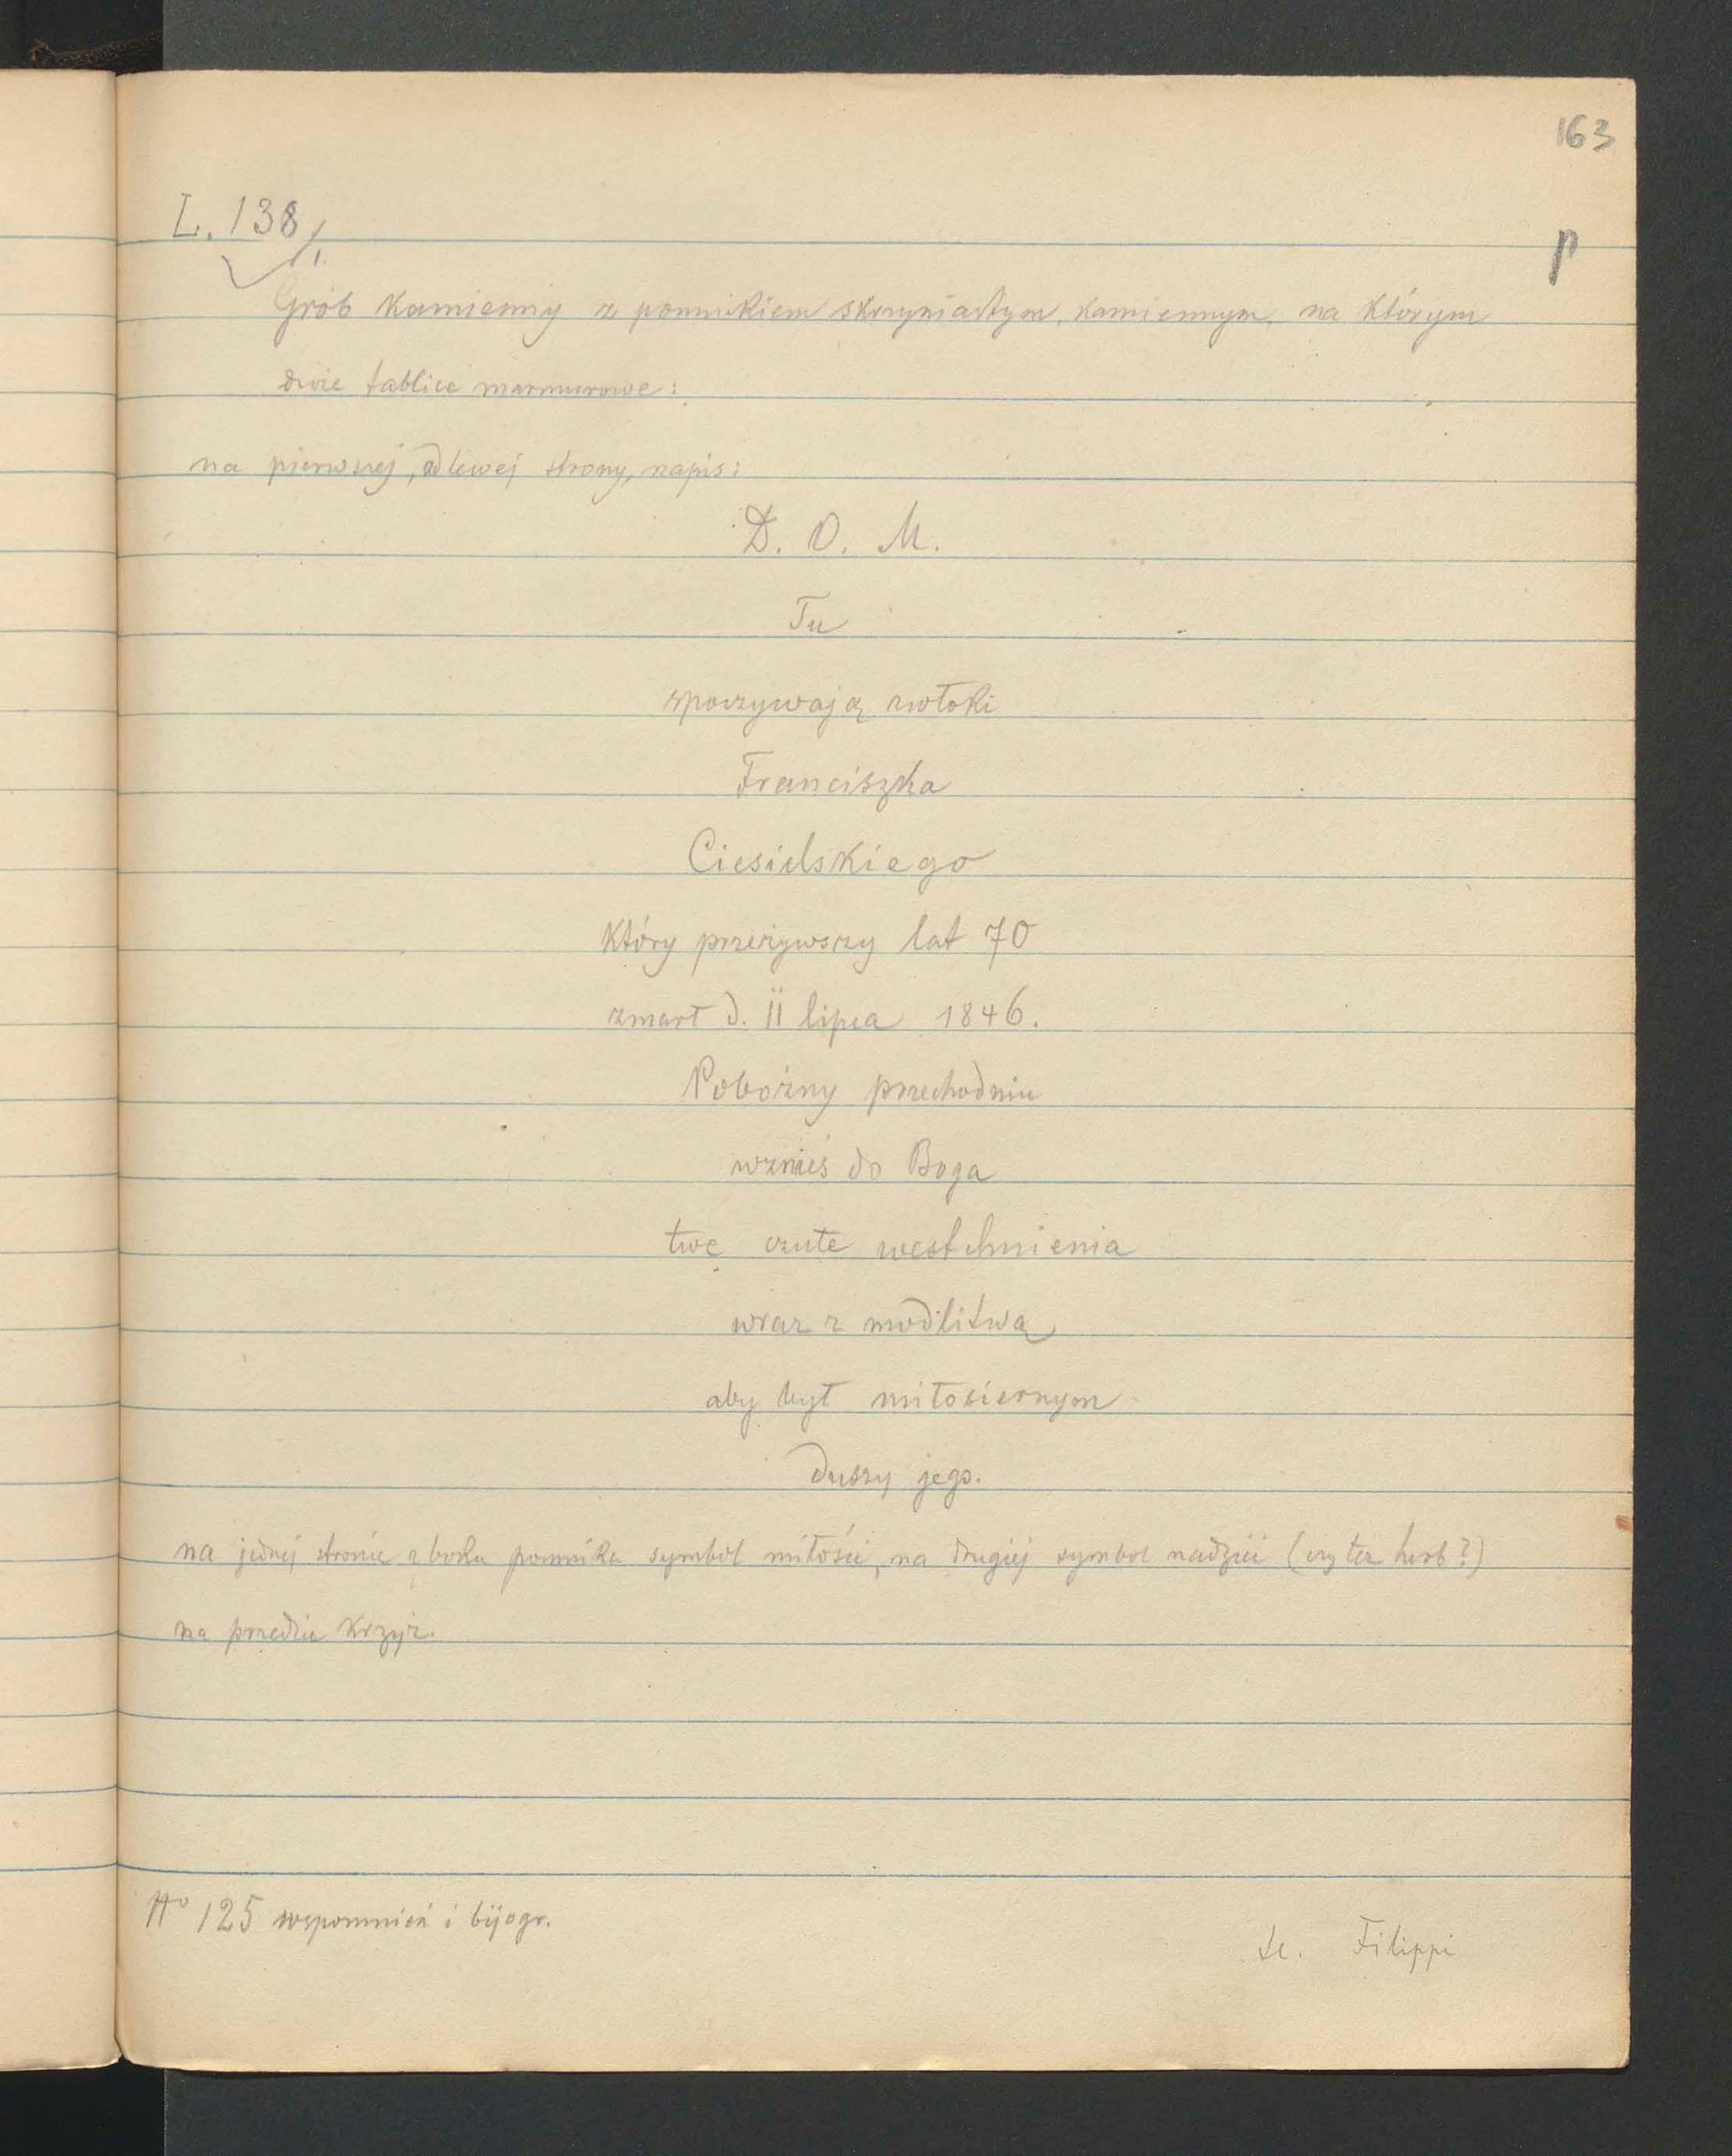 163
L. 138/.
p
Grób kamienny z pomnikiem skrzyniastym, kamiennym, na którym
dwie tablice marmurowe:
na pierwszej, od lewej strony, napis:
D. O. M.
Tu
spoczywają zwłoki
Franciszka
Ciesielskiego
który przeżywszy lat 70
zmarł d. 11 lipca 1846.
Pobożny przechodniu
wznieś do Boga
twe czułe westchnienia
wraz z modlitwą
aby był miłosiernym
duszy jego.
na jednej stronie z boku pomnika symbol miłości, na drugiej symbol nadziei (czy też herb?)
na przedzie krzyż.
No 125 wspomnień i bijogr.
Filippi